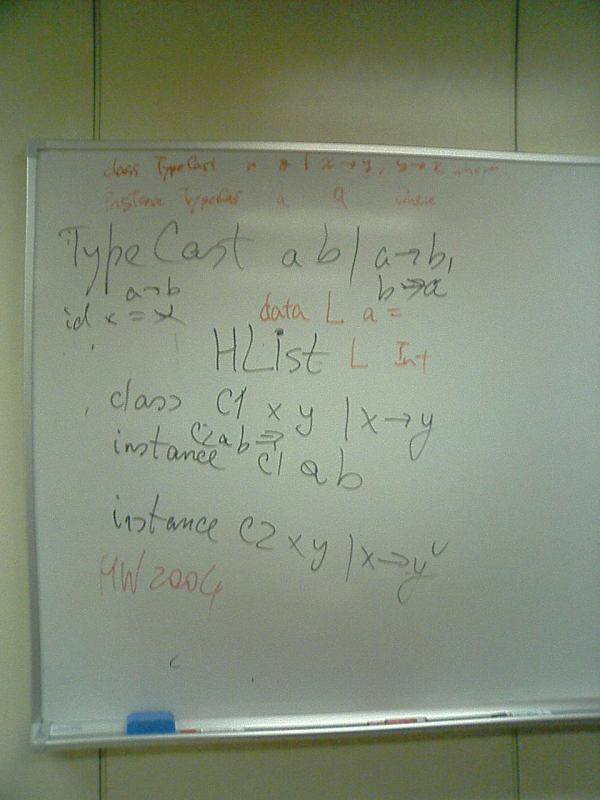 class TypeCast x y | x → y, y → x where
instance TypeCast a a where
TypeCast a b | a → b,
b → a
a → b
id x = x
data L a =
HList L Int
class C1 x y | x → y
instance C2 a b ⇒
C1 a b
instance C2 x y | x → y
HW 2004